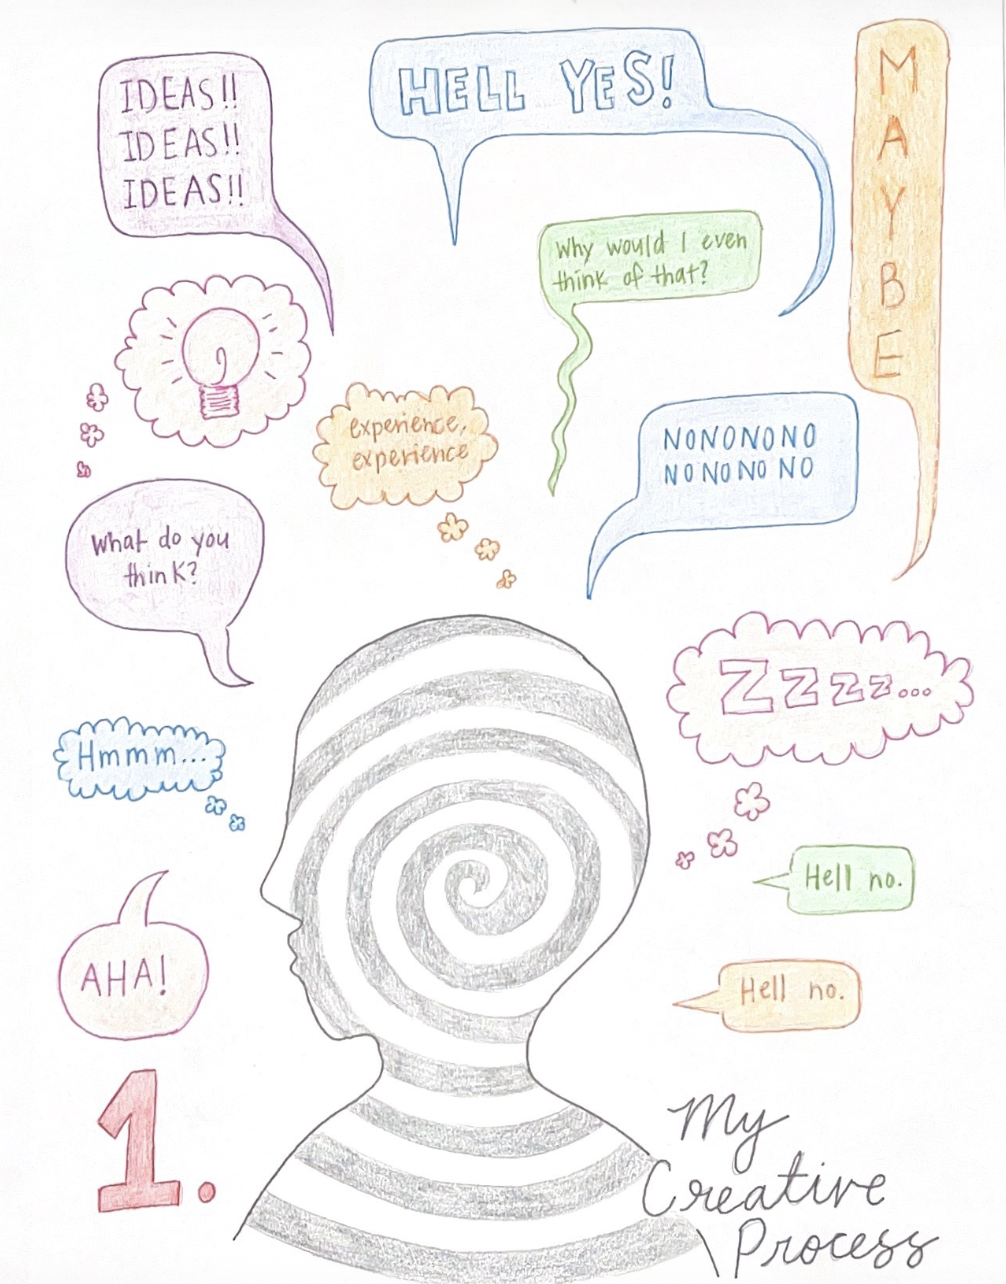 IDEAS!!
IDEAS!!
IDEAS!!
HELL YES!
MAYBE
Why would I even
think of that?
experience,
experience
NONONONO
NONONONO
What do you
think?
Zzzz...
Hmmm...
Hell no.
AHA!
Hell no.
1.
My
Creative
Process